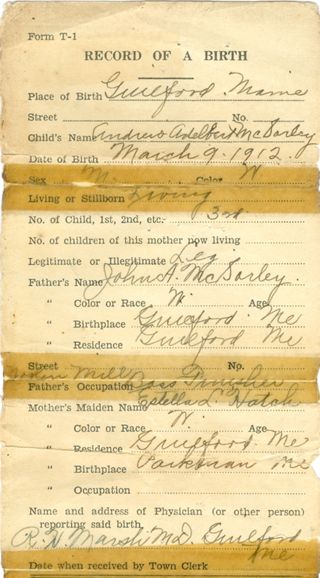 Form T-1
RECORD OF A BIRTH
Place of Birth Guilford Maine
Street No.
Child's Name Andrew Adelbert McSorley
Date of Birth March 9, 1912.
Sex M Color W
Living or Stillborn Living
No. of Child, 1st, 2nd, etc. 3rd
No. of children of this mother now living
Legitimate or Illegitimate Leg
Father's Name John A. McSorley.
" Color or Race W. Age
" Birthplace Guilford Me
" Residence Guilford Me
Street No.
Woolen Mill
Father's Occupation Finisher
Mother's Maiden Name Estella L Hatch
" Color or Race W. Age
" Residence Guilford Me
" Birthplace Parkman Me
" Occupation
Name and address of Physician (or other person)
reporting said birth,
R. H. Marsh M.D. Guilford
Me
Date when received by Town Clerk